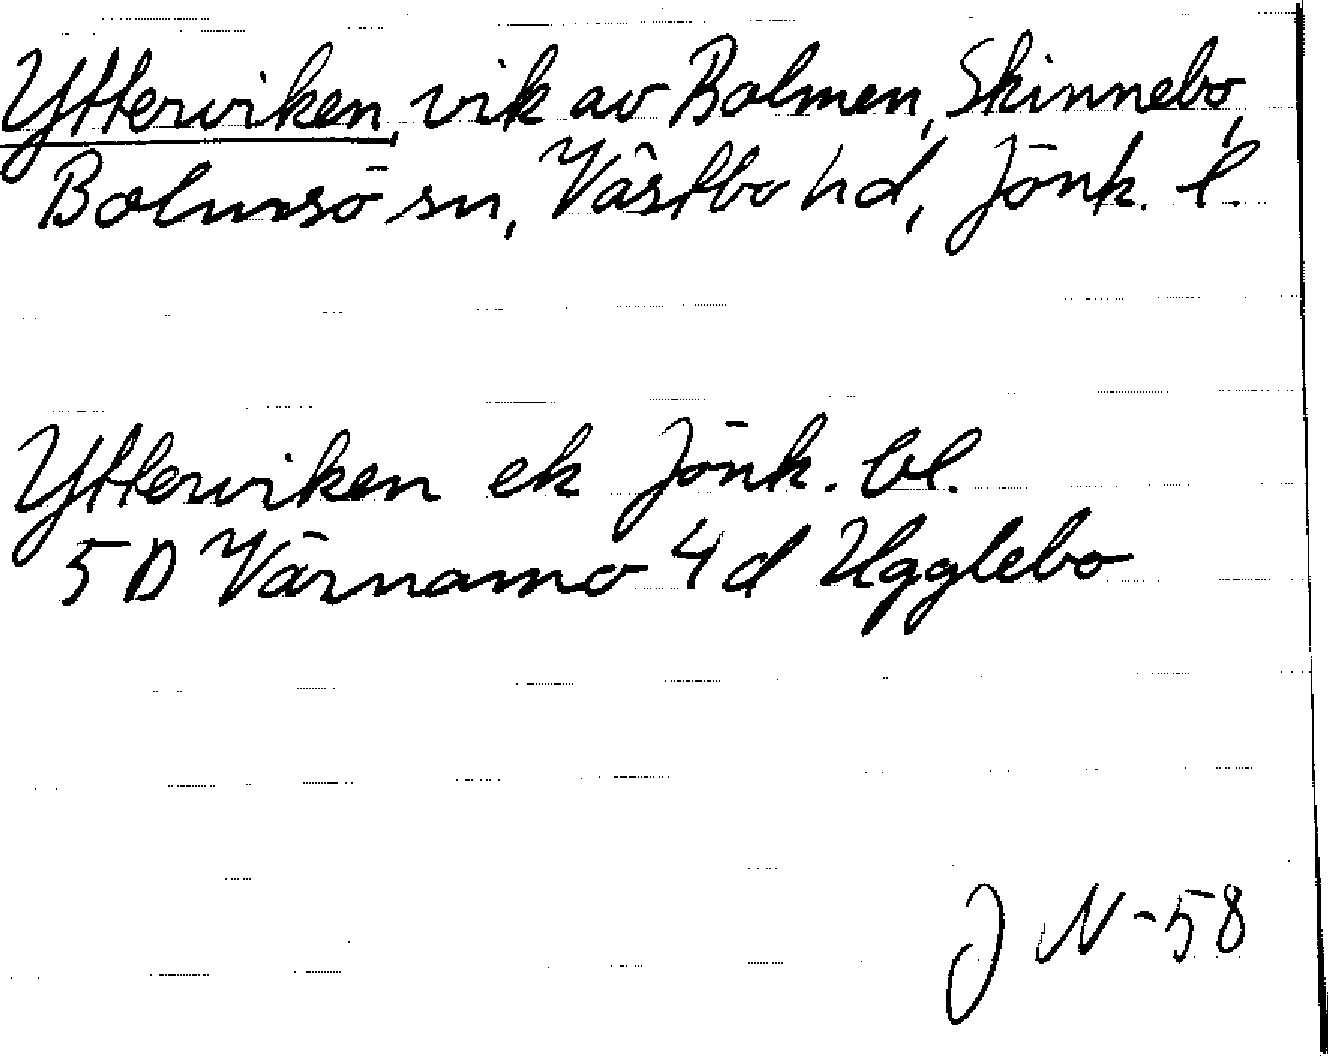 Ytterviken, vik av Bolmen, Skinnebo,
Bolmsö sn, Västbo hd, Jönk. l.
Ytterviken ek Jönk. bl.
5D Värnamo 4d Ugglebo
J N-58